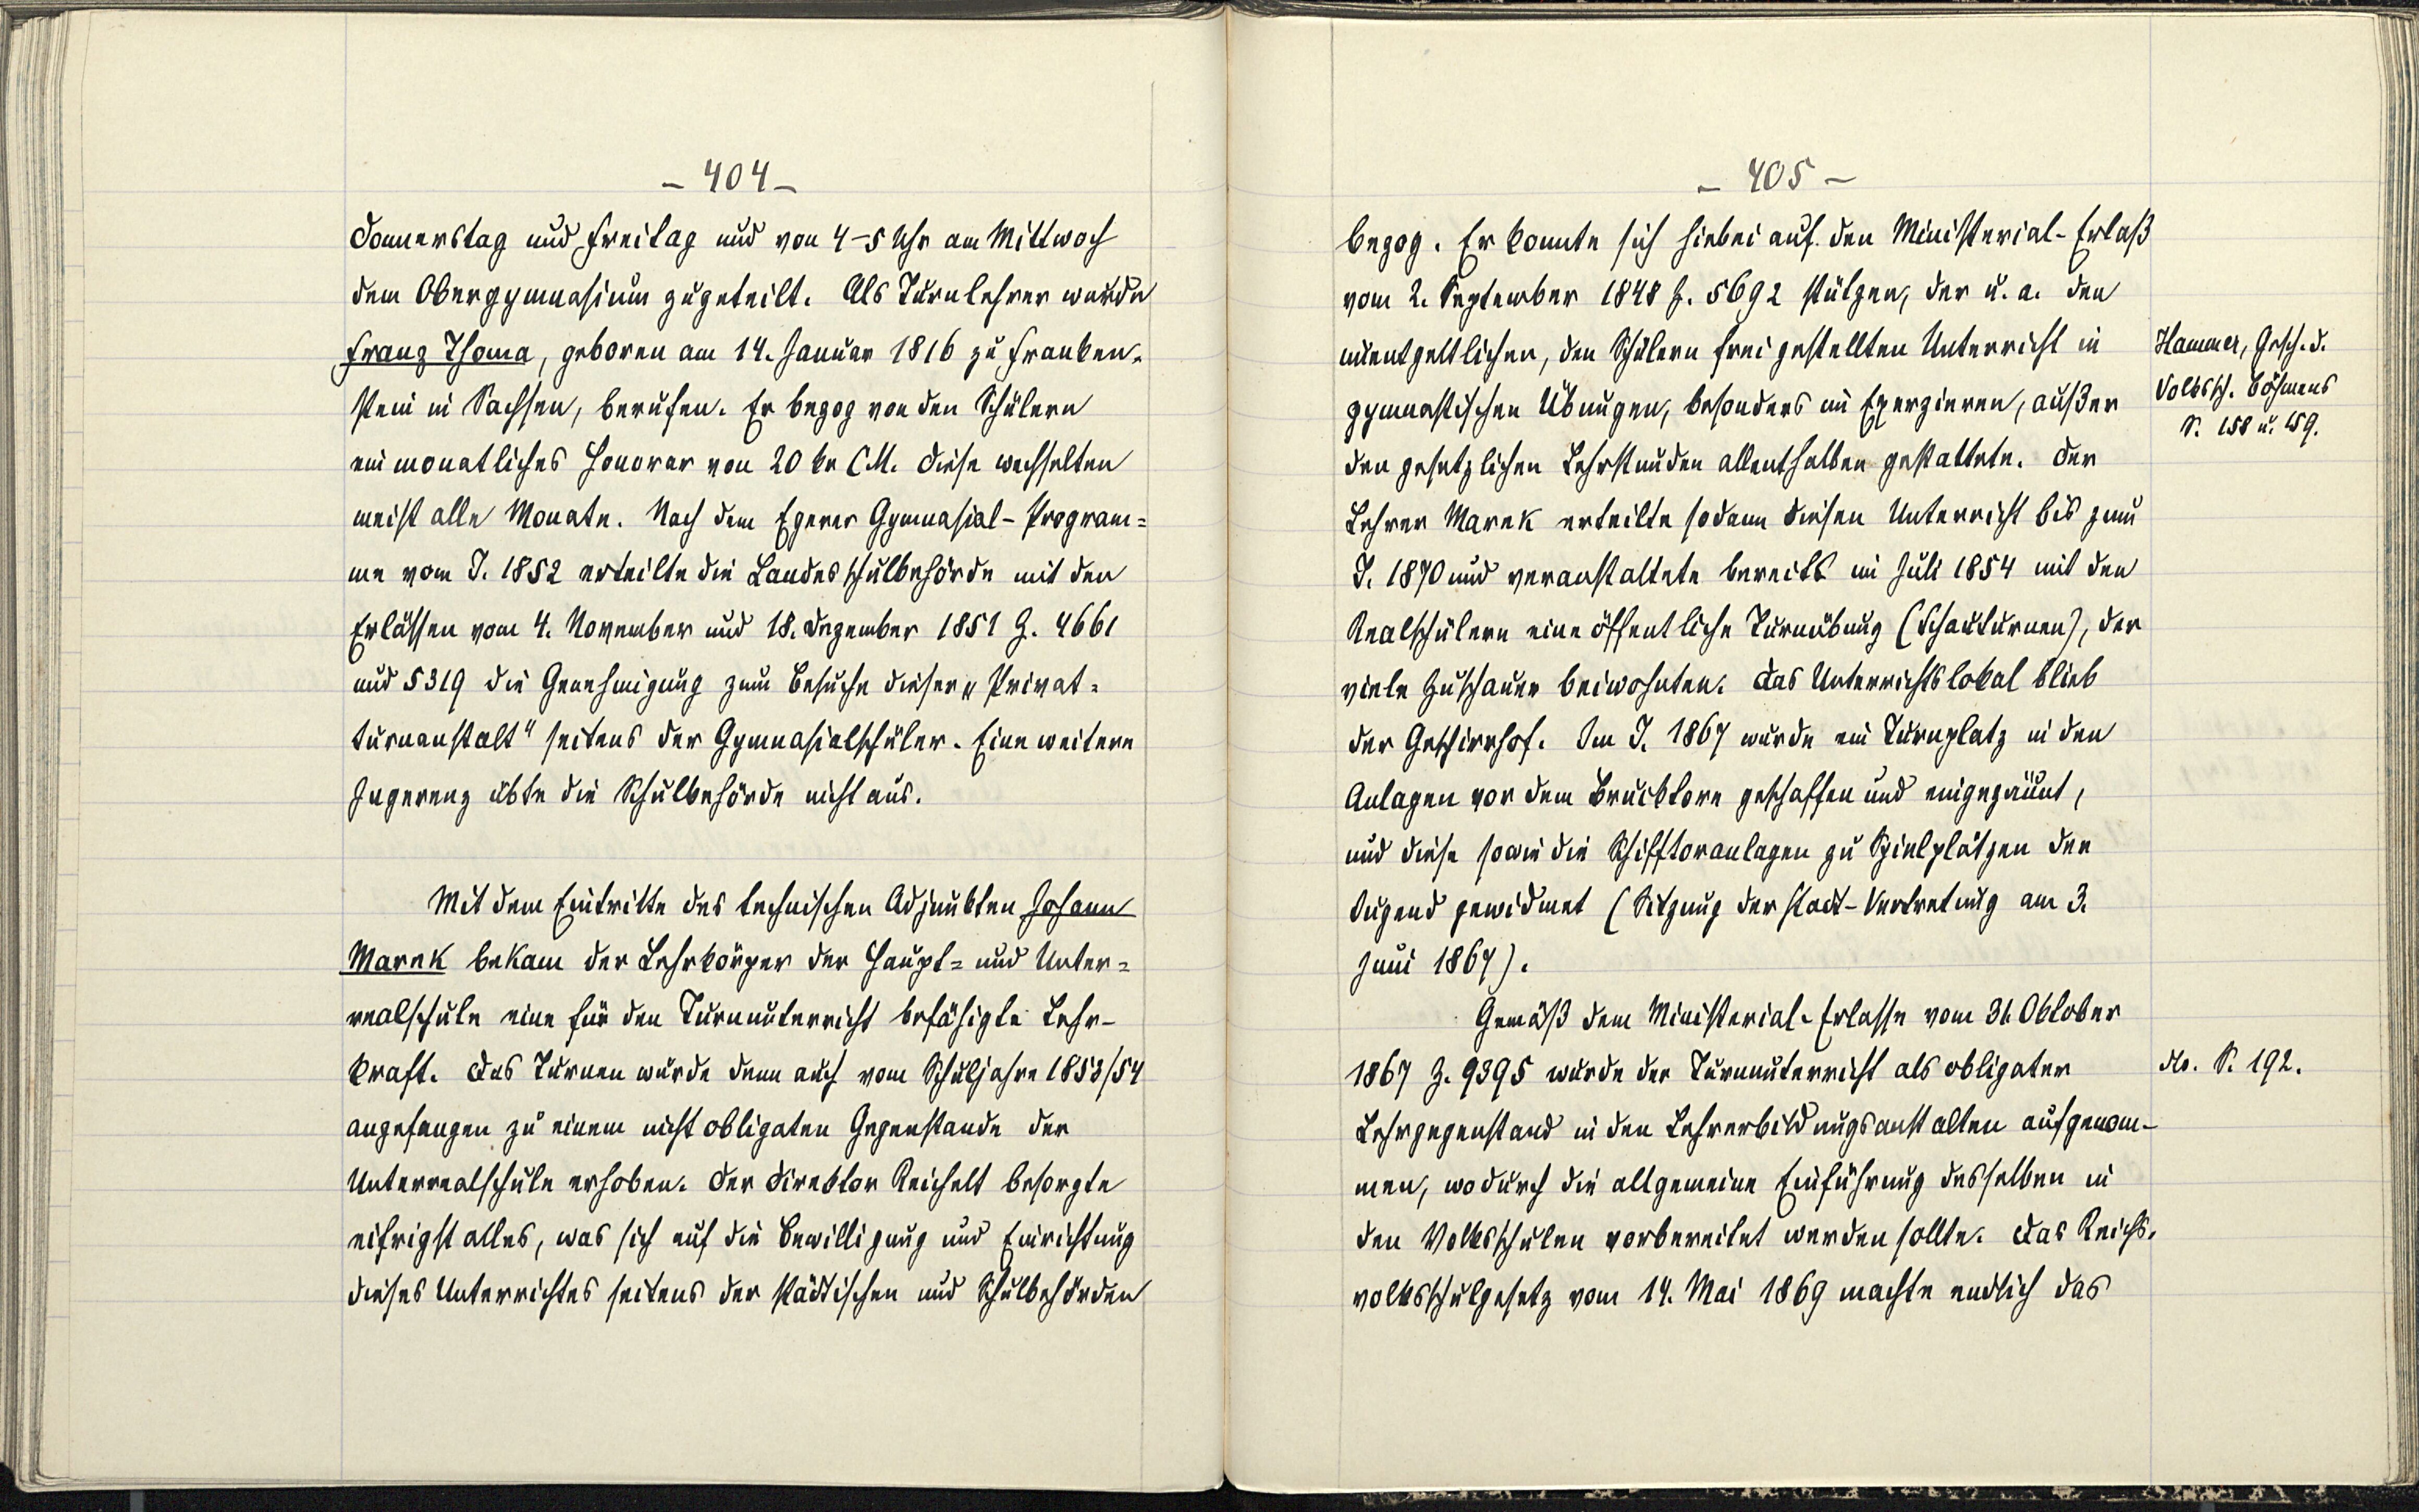 - 404 -
Donnerstag und Freitag und von 4-5 Uhr am Mittwoch
dem Obergymnasium zugeteilt. Als Turnlehrer wurde
Franz Thoma, geboren am 14. Januar 1816 zu Franken-
stein in Sachsen, berufen. Er bezog von den Schülern
ein monatliches Honorar von 20 kr CM. Diese wechselten
meist alle Monate. Nach dem Egerer Gymnasial-Program=
me vom J. 1852 erteilte die Landesschulbehörde mit den
Erlässen vom 4. November und 18. Dezember 1851 Z. 4661
und 5319 die Genehmigung zum Besuche dieser „Privat=
turnanstalt" seitens der Gymnasialschüler. Eine weitere
Ingerenz übte die Schulbehörde nicht aus.
Mit dem Eintritte des technischen Adjunkten Johann
Marek bekam der Lehrkörper der Haupt= und Unter=
realschule eine für den Turnunterricht befähigte Lehr-
kraft. Das Turnen wurde denn auch vom Schuljahre 1853/54
angefangen zu einem nicht obligaten Gegenstande der
Unterrealschule erhoben. Der Direktor Reichelt besorgte
eifrigst alles, was sich auf die Bewilligung und Einrichtung
dieses Unterrichtes seitens der städtischen und Schulbehörden
- 405 -
bezog. Er konnte sich hiebei auf den Ministerial-Erlaß
vom 2. September 1848 Z. 5692 stützen, der u. a. den
unentgeltlichen, den Schülern frei gestellten Unterricht in
gymnastischen Übungen, besonders im Exerzieren, außer
den gesetzlichen Lehrstunden allenthalben gestattete. Der
Lehrer Marek erteilte sodann diesen Unterricht bis zum
J. 1870 und veranstaltete bereits im Juli 1854 mit den
Realschülern eine öffentliche Turnübung (Schauturnen), der
viele Zuschauer beiwohnten. Das Unterrichtslokal blieb
der Geschirrhof. Im J. 1867 wurde ein Turnplatz in den
Anlagen vor dem Brucktore geschaffen und eingezäunt,
und diese sowie die Schifftoranlagen zu Spielplätzen der
Jugend gewidmet (Sitzung der Stadt-Vertretung am 3.
Juni 1867).
Gemäß dem Ministerial-Erlasse vom 31. Oktober
1867 Z. 9395 wurde der Turnunterricht als obligater
Lehrgegenstand in den Lehrerbildungsanstalten aufgenom-
men, wodurch die allgemeine Einführung desselben in
den Volksschulen vorbereitet werden sollte. Das Reichs-
volksschulgesetz vom 14. Mai 1869 machte endlich das
Hammer, Gesch. d.
Volkssch. Böhmens
S. 158 u. 159.
dto. S. 192.